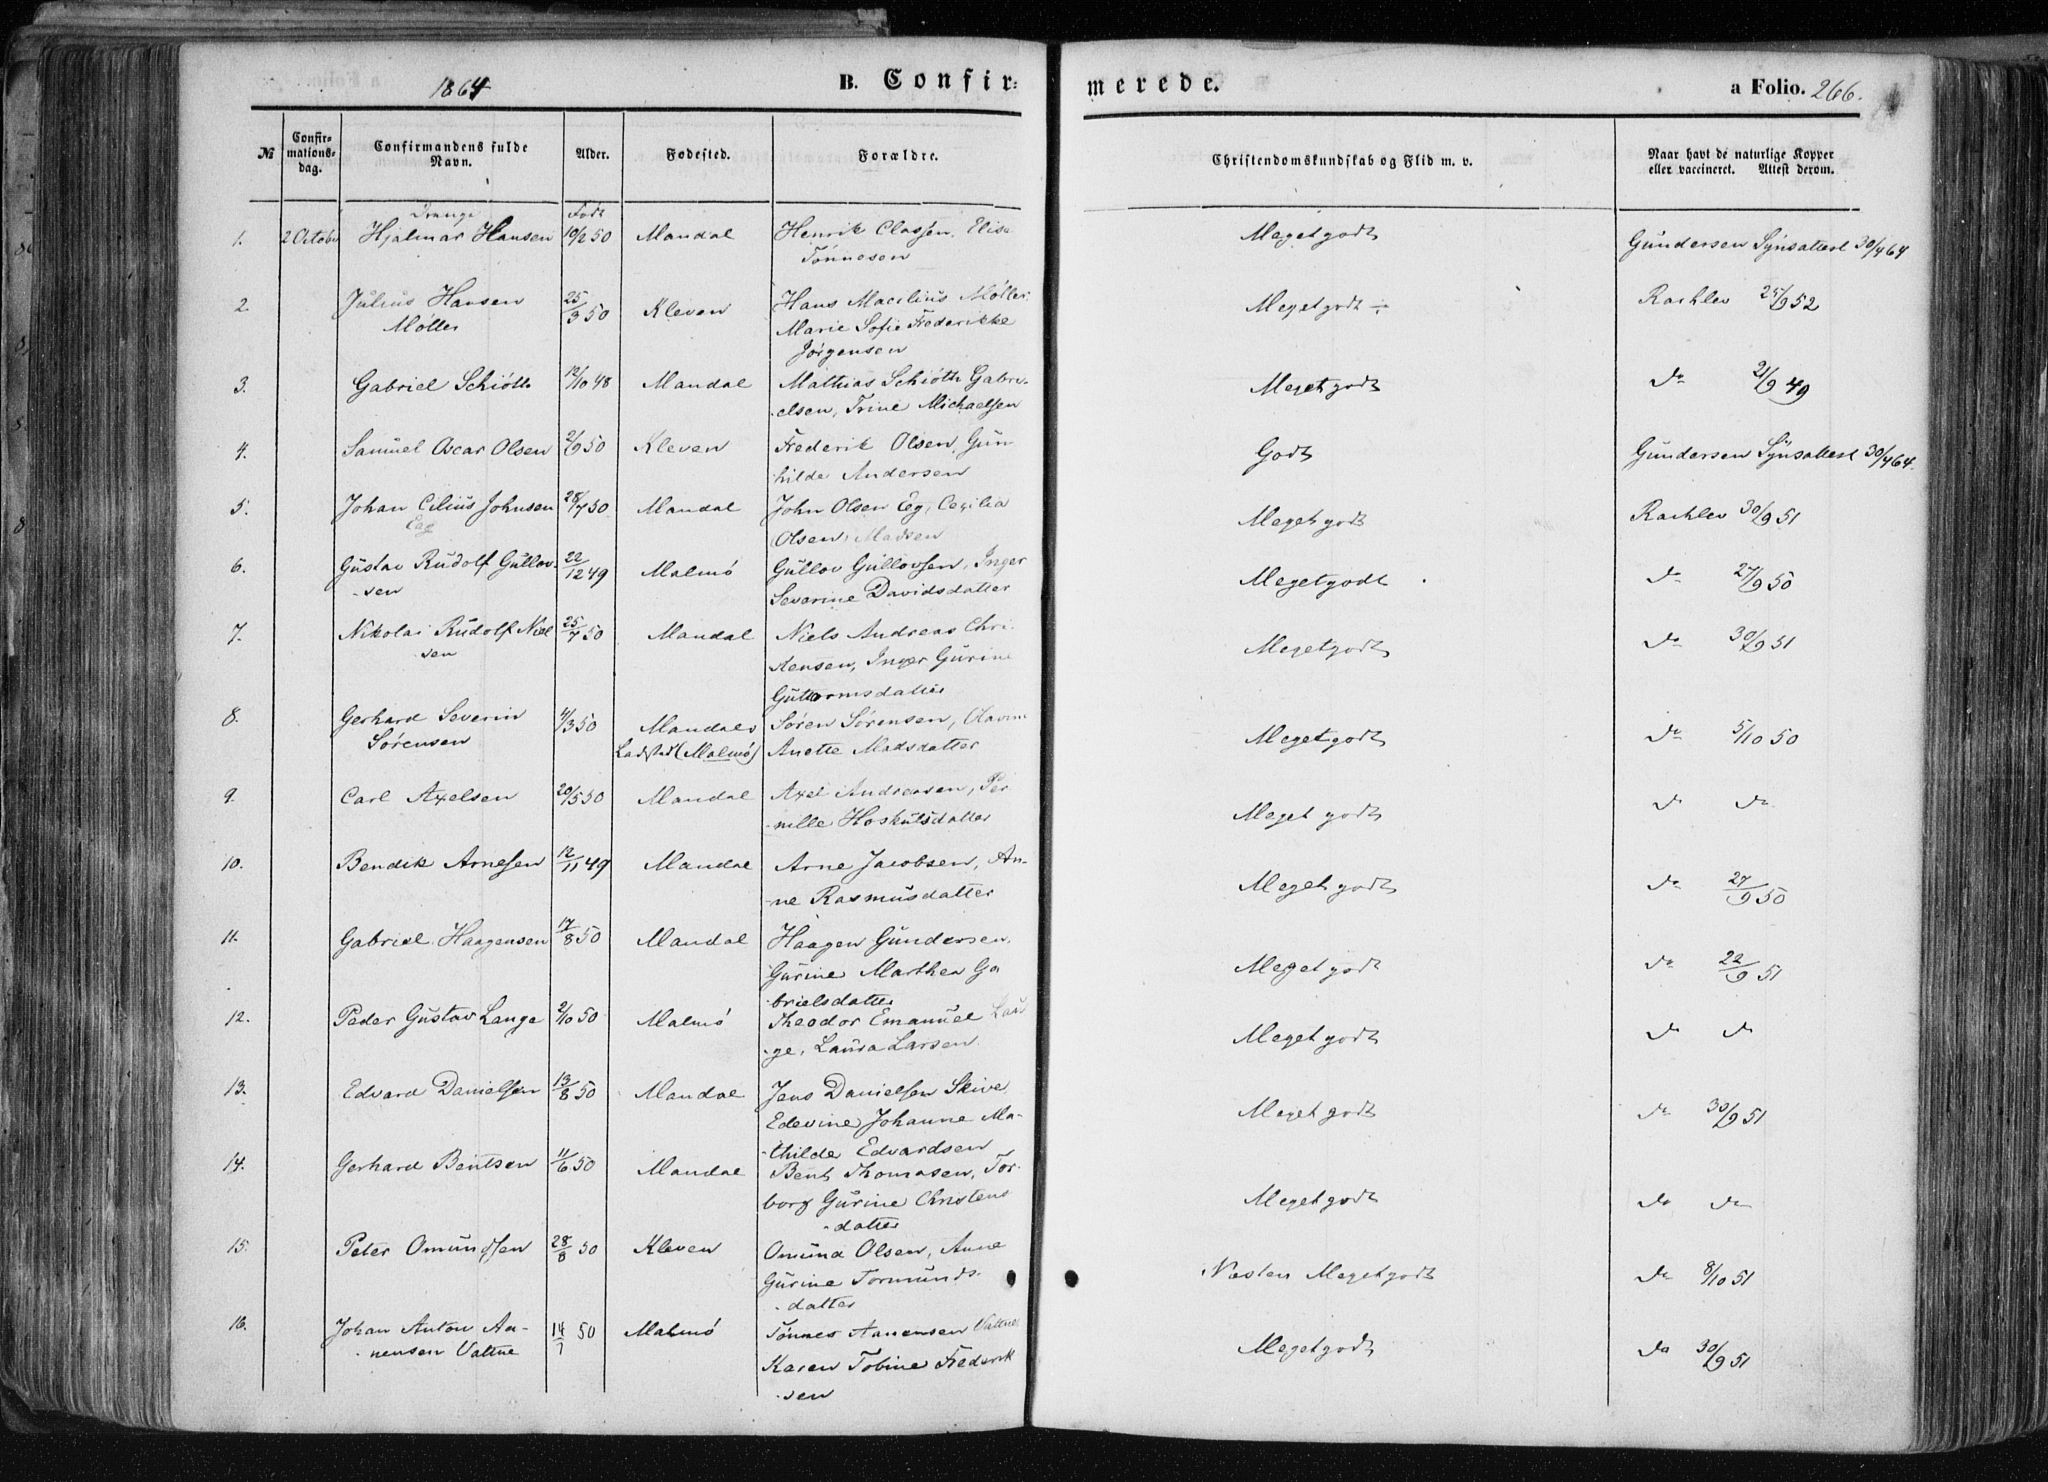 1864 B. Confirmerede. a Folio. 266.
№ Confirmationsdag. Confirmandens fulde Navn. Alder. Fødested. Forældre. Christendomskundskab og Flid m. v. Naar havt de naturlige Kopper eller vaccineret. Attest derom.
Drenge Født
1. 2 October Hjalmar Hansen 10/2 50 Mandal Henrik Clasen, Elise Meget godt Gundersen Synsattest 30/4 64
Tønnesen
2. Julius Hansen 25/3 50 Kleven Hans Macelius Møller Meget godt ÷ Rachlev 25/9 52
Møller Marie Sofie Frederikke
Jørgensen
3. Gabriel Schiøtt 12/10 48 Mandal Mathias Schiøtt Gabri- Meget godt do 21/9 49
elsen, Trine Michaelsen
4. Samuel Oscar Olsen 2/9 50 Kleven Frederik Olsen, Gun Godt Gundersen Synsattest 30/4 64
hilde Andersen
5. Johan Cilius Johnsen 28/7 50 Mandal John Olsen Eg, Cecilia Meget godt Rachlev 30/9 51
Eeg (Olsen) Madsen
6. Gustav Rudolf Gullov- 22/12 49 Malmø Gullov Gullovsen, Inger Meget godt do 27/9 50
-sen Severine Davidsdatter
7. Nikolai Rudolf Niel 25/7 50 Mandal Niels Andreas Chri- Meget godt do 30/9 51
sen stensen, Inger Gurine
Guttormsdatter
8. Gerhard Severin 4/3 50 Mandals Søren Sørensen, Olavine Meget godt do 5/10 50
Sørensen Ladsted (Malmø) Anette Madsdatter
9. Carl Axelsen 20/5 50 Mandal Axel Andreasen, Per Meget godt do do
-nille Hoskulsdatter
10. Bendik Arnesen 12/11 49 Mandal Arne Jacobsen, An- Meget godt do 27/9 50
-ne Rasmusdatter
11. Gabriel Haagensen 17/8 50 Mandal Haagen Gundersen, Meget godt do 22/9 51
Gurine Marthea Ga
-brielsdatter
12. Peder Gustav Lange 2/10 50 Malmø Theodor Emanuel Lan Meget godt do do
-ge, Laura Larsen
13. Edvard Danielsen 13/8 50 Mandal Jens Danielsen Skive, Meget godt do 30/9 51
Edevine Johanne Ma-
-thilde Edvardsen
14. Gerhard Bentsen 11/6 50 Mandal Bent Thomasen, Tor- Meget godt do do
borg Gurine Christens
-datter
15. Peter Omundsen 28/8 50 Kleven Omund Olsen, Anne Næsten Meget godt do 8/10 51
Gurine Tormunds-
-datter
16. Johan Anton Aa- 14/7 50 Malmø Tønnes Aanensen Vattne Meget godt do 30/9 51
-nensen Vattne Karen Tobine Frederik
-sen